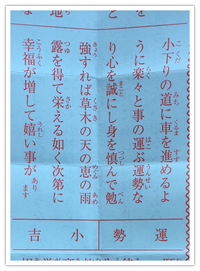 小下りの道に車を進めるよ
うに楽々と事の運ぶ運勢な
り心を誠にし身を慎んで勉
強すれば草木の天の恵の雨
露を得て栄える如く次第に
幸福が増して嬉い事があります
運勢
小吉